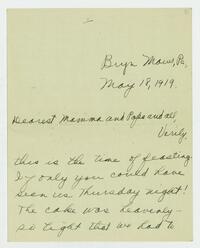 Bryn Mawr, Pa.
May 18, 1919.
Dearest Mamma and Papa and all,
Verily
this is the time of feasting.
If only you could have
seen us Thursday night!
The cake was heavenly—
so light that we had to